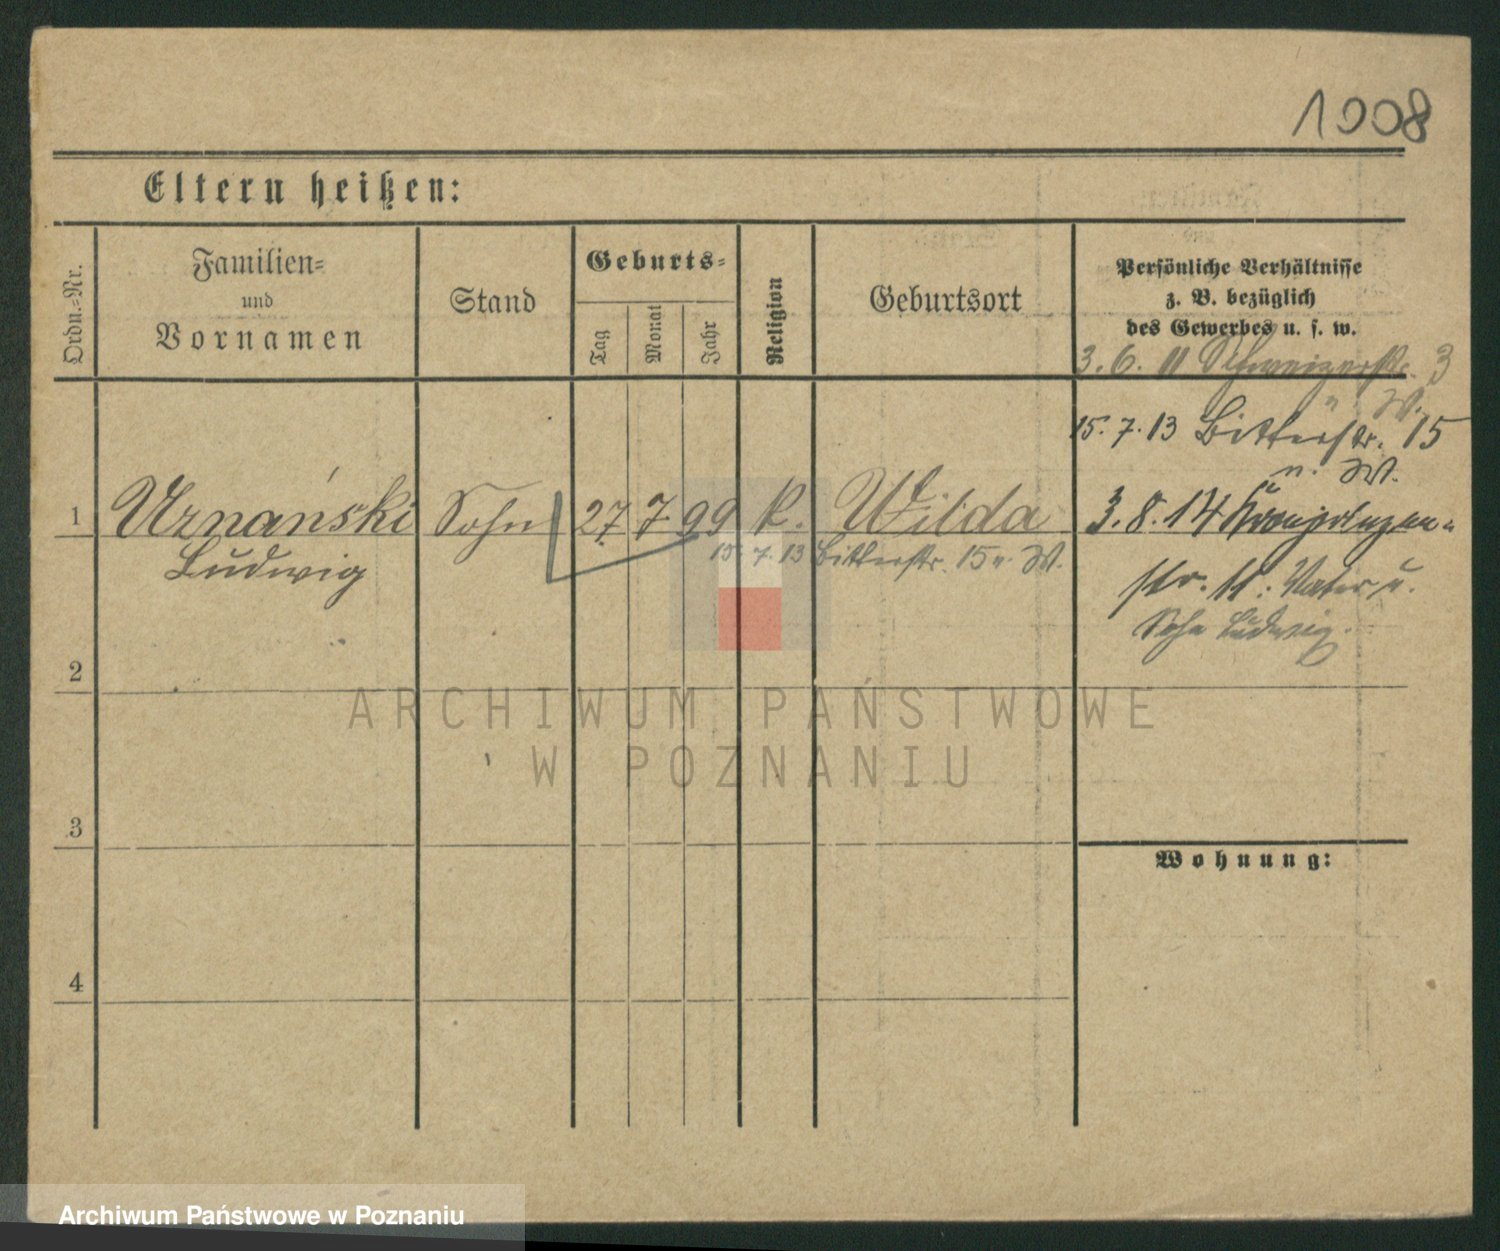 1008
Eltern heißen:
Ordn.-Nr.
Familien-
und
Vornamen
Stand
Geburts-
Tag
Monat
Jahr
Religion
Geburtsort
Persönliche Verhältnisse
z. B. bezüglich
des Gewerbes u. s. w.
3. 6. 11 Schweizerstr. 3
u. W.
15. 7. 13 Bitterstr. 15
u. W.
1 Urnański Sohn 27 7 99 K. Wilda 3. 8. 14 Kronprinzen-
Ludwig
15. 7. 13 Bitterstr. 15 u. W.
str. 11. Vater u.
Sohn Ludwig.
2
ARCHIWUM PAŃSTWOWE
W POZNANIU
3
Wohnung:
4
Archiwum Państwowe w Poznaniu